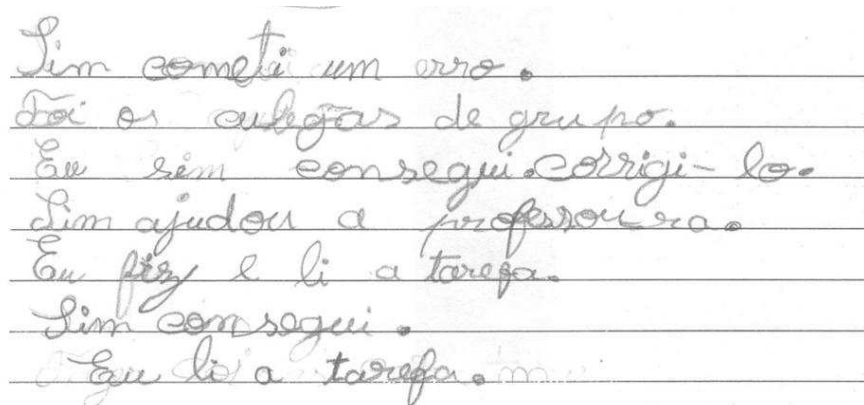 Sim cometi um erro.
Foi os culegas de grupo.
Eu sim consegui. corrigi-lo.
Sim ajudou a professoura.
Eu fiz e li a tarefa.
Sim consegui.
Eu li a tarefa.